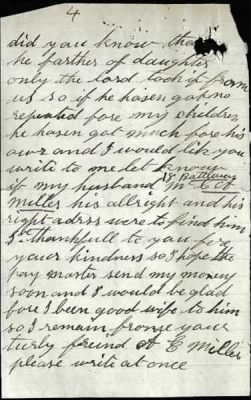 4
did you know that
he farther of daughter
only the lord tooh if from
us so if he hasen got no
repented fore my children
he hasen got much fore his
owr and I would like you
write to me let know
if my husband M C W
15 Matthews
Miller his allright and his
right adrss were to find him
I thankfull to you for
your kindness so I hope the
pay master send my money
soon and I would be glad
fore I been good wife to him
so I remain fronse your
turly freind A C Miller
please write at once